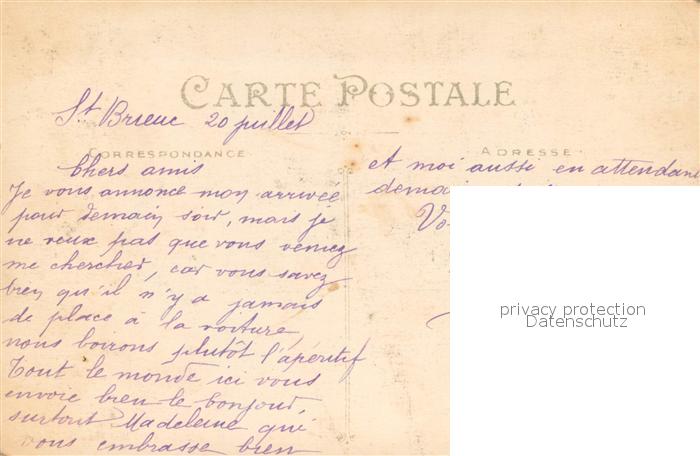 CARTE POSTALE
St Brieuc 20 juillet
CORRESPONDANCE
ADRESSE
Chers amis
Je vous annonce mon arrivée
pour demain soir, mais je
ne veux pas que vous veniez
me chercher, car vous savez
bien qu'il n'y a jamais
de place à la voiture,
nous boirons plutôt l'apéritif
Tout le monde ici vous
envoie bien le bonjour,
surtout Madeleine qui
vous embrasse bien
et moi aussi en attendant
privacy protection
Datenschutz